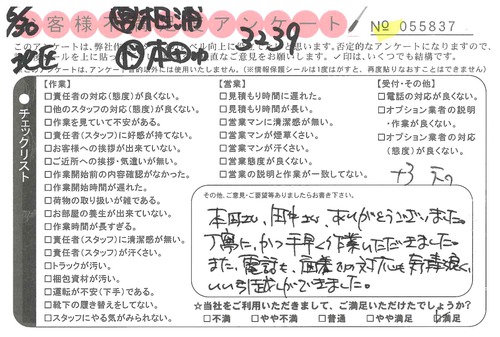 お客様不満足度アンケート
№ 055837
3239
このアンケートは、弊社作
向上に
と思います。否定的なアンケートになりますので、
シールを上に貼っ
直なご意見をお願いします。✓印は、いくつでも結構です。
このアンケートは、アンケート目的以外には使用いたしません。(※情報保護シールは1度はがすと、再度貼りなおすことはできません)
チェックリスト
【作業】
□責任者の対応(態度)が良くない。
□他のスタッフの対応(態度)が良くない。
□作業を見ていて不安がある。
□責任者(スタッフ)に好感が持てない。
□お客様への挨拶が出来ていない。
□ご近所への挨拶・気遣いが無い。
□作業開始前の内容確認がなかった。
□作業開始時間が遅れた。
□荷物の取り扱いが雑である。
□お部屋の養生が出来ていない。
□作業時間が長すぎる。
□責任者(スタッフ)に清潔感が無い。
□責任者(スタッフ)が汗くさい。
□トラックが汚い。
□梱包資材が汚い。
□運転が不安(下手)である。
□靴下の履き替えをしてない。
□スタッフにやる気がみられない。
【営業】
□見積もり時間に遅れた。
□見積もり時間が長い。
□営業マンに清潔感が無い。
□営業マンが煙草くさい。
□営業マンが汗くさい。
□営業態度が良くない。
□営業の説明と作業が一致してない。
【受付・その他】
□電話の対応が良くない。
□オプション業者の説明
・作業が良くない。
□オプション業者の対応
(態度)が良くない。
その他、ご意見・ご要望等ありましたらお書き下さい。
本田さん、田中さん、ありがとうございました。
丁寧に、かつ手早く作業いただきました。
また、電話も、
対応も気持良く、
いい引越しができました。
☆当社をご利用いただきまして、ご満足いただけたでしょうか?
□不満 □やや不満 □普通 □やや満足 □満足